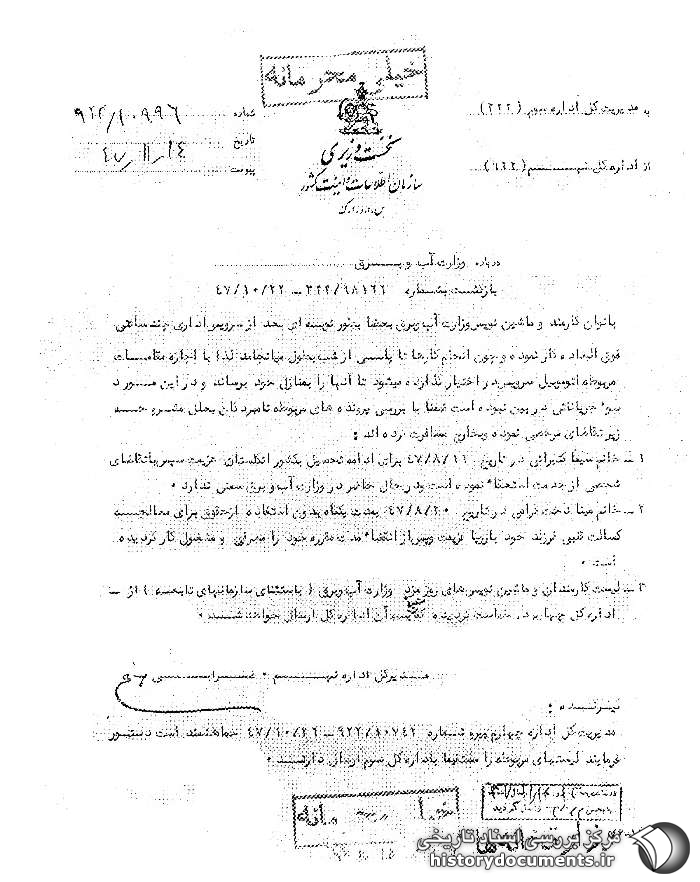 خیلی محرمانه
به مدیریت کل اداره سوم (۳۲۲)
شماره ۹۲۲/۱۰۹۹۶
از اداره کل نهم (۹۲۲)
تاریخ ۴۷/۱۱/۱۴
پیوست
نخست وزیری
سازمان اطلاعات و امنیت کشور
س.ا.و.ا.ک
درباره وزارت آب و برق
بازگشت بشماره ۳۲۲/۶۸۱۶۶ – ۴۷/۱۰/۲۲
بانوان کارمند و ماشین نویس وزارت آب و برق بعضا بطور نوبه ای بعد از سرویس اداری چند ساعتی
فوق العاده کار نموده و چون انجام کارها تا پاسی از شب بطول میانجامد لذا با اجازه مقامات
مربوطه اتومبیل سرویس در اختیار گذارده میشود تا آنها را بمنازل خود برساند و در این مورد
سوء جریاناتی در بین نبوده است ضمنا با بررسی پرونده های مربوطه نامبردگان بعلل مشروحه
زیر تقاضای مرخصی نموده و بخارج مسافرت کرده اند :
۱ – خانم در تاریخ ۴۷/۸/۱۱ برای ادامه تحصیل بکشور انگلستان عزیمت سپس بنا بتقاضای
شخصی از خدمت استعفاء نموده است و در حال حاضر در وزارت آب و برق سمتی ندارد .
۲ – خانم در تاریخ ۴۷/۸/۲۰ بمدت یکماه بدون استفاده از حقوق برای معالجه
کسالت قلبی فرزند خود باروپا عزیمت و پس از انقضاء مدت مقرره خود را معرفی و مشغول کار گردیده
است .
۳ – لیست کارمندان و ماشین نویس های روزمزد وزارت آب و برق (باستثنای سازمانهای تابعه) از –
اداره کل چهارم درخواست گردیده که بآن اداره کل ارسال خواهند شد .
مدیر کل اداره نهم .
گیرنده :
مدیریت کل اداره چهارم پیرو شماره ۹۲۲/۱۰۷۴۲ – ۴۷/۱۰/۲۶ خواهشمند است دستور
فرمایند لیستهای مربوطه را مستقیما باداره کل سوم ارسال دارند .
خیلی محرمانه
مرکز بررسی اسناد تاریخی
historydocuments.ir